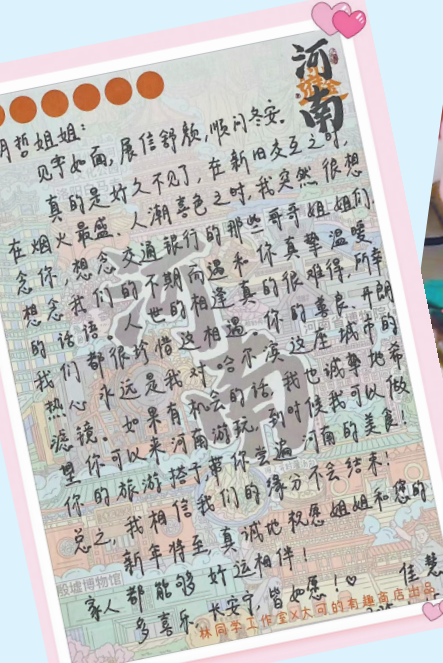 河南
月哲姐姐:
见字如面,展信舒颜,顺问冬安。
真的是好久不见了,在新旧交互之时,
在烟火最盛、人潮喜色之时,我突然很想
念你,想念交通银行的那些哥哥姐姐们,
想念我们的不期而遇和你真挚温暖
的话语。人世的相逢真的很难得,所幸
我们都很珍惜这相遇。你的善良、开朗
热心永远是我对哈尔滨这座城市的
滤镜。如果有机会的话,我也诚挚地希
望你可以来河南游玩,到时候我可以做
你的旅游搭子带你尝遍河南的美食!
总之,我相信我们的缘分不会结束!
新年将至,真诚地祝愿姐姐和您的
家人都能够好运相伴!
多喜乐,长安宁,皆如愿!♡
佳慧
河南
殷墟博物馆
林同学工作室X大可的有趣商店出品